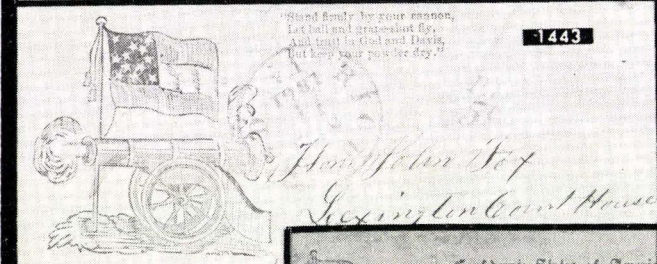 "Stand firmly by your cannon,
Let ball and grape-shot fly,
And trust in God and Davis,
But keep your powder dry."
1443
Hon John Fox
Lexington Court House